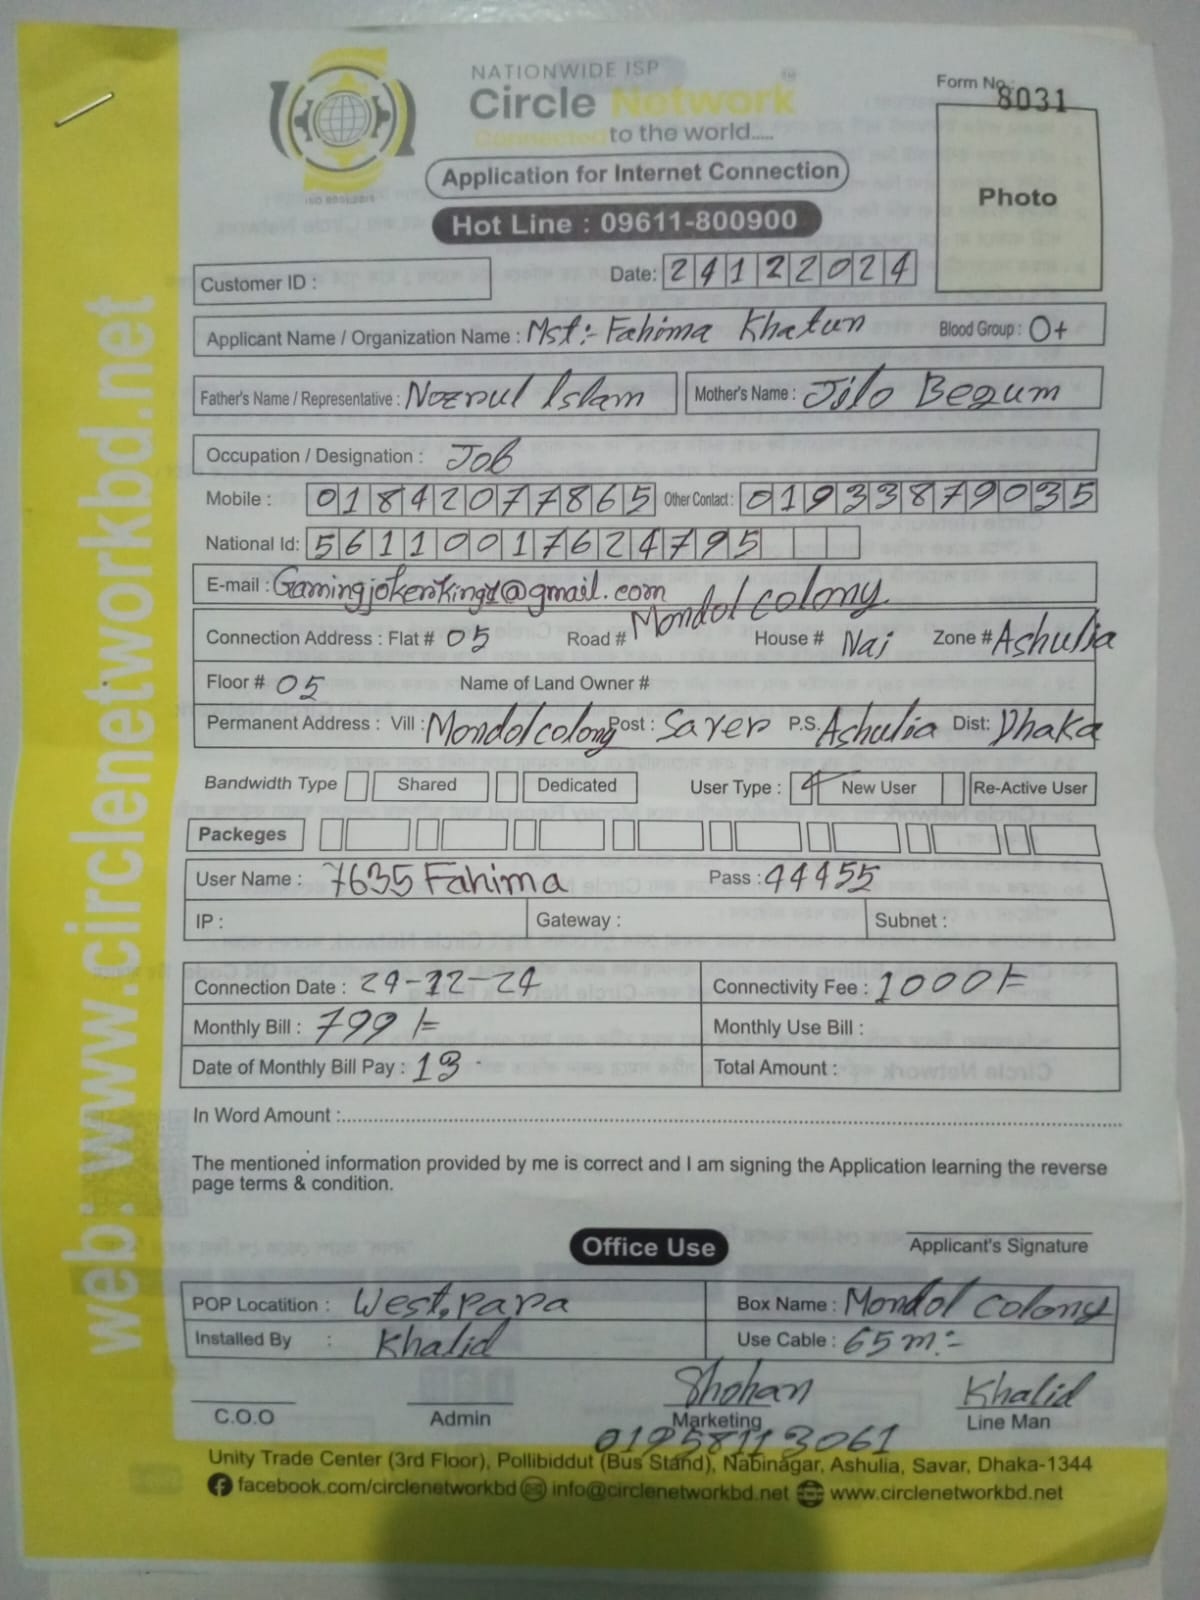 NATIONWIDE ISP
Circle Network™
Connected to the world.....
ISO 9001:2015
Form No.: 8031
Photo
Application for Internet Connection
Hot Line : 09611-800900
Customer ID :
Date: 24122024
Applicant Name / Organization Name : Mst:- Fahima Khatun Blood Group : O+
Father's Name / Representative : Nozrul Islam Mother's Name : Jilo Begum
Occupation / Designation : Job
Mobile : 01842077865 Other Contact : 01933879035
National Id: 56110017624795
E-mail : Gamingjokerking1@gmail.com
Connection Address : Flat # 05 Road # Mondol colony House # Nai Zone # Ashulia
Floor # 05 Name of Land Owner #
Permanent Address : Vill : Mondol colony Post : Saver P.S. Ashulia Dist: Dhaka
Bandwidth Type Shared Dedicated User Type : New User Re-Active User
Packeges
User Name : 7635 Fahima Pass : 44455
IP : Gateway : Subnet :
Connection Date : 24-12-24 Connectivity Fee : 1000/=
Monthly Bill : 799/= Monthly Use Bill :
Date of Monthly Bill Pay : 13 Total Amount :
In Word Amount :
The mentioned information provided by me is correct and I am signing the Application learning the reverse
page terms & condition.
Office Use
Applicant's Signature
POP Locatition : West, para Box Name : Mondol colony
Installed By : Khalid Use Cable : 65 m:-
Shohan Khalid
C.O.O Admin Marketing Line Man
01958113061
Unity Trade Center (3rd Floor), Pollibiddut (Bus Stand), Nabinagar, Ashulia, Savar, Dhaka-1344
facebook.com/circlenetworkbd info@circlenetworkbd.net www.circlenetworkbd.net
web: www.circlenetworkbd.net